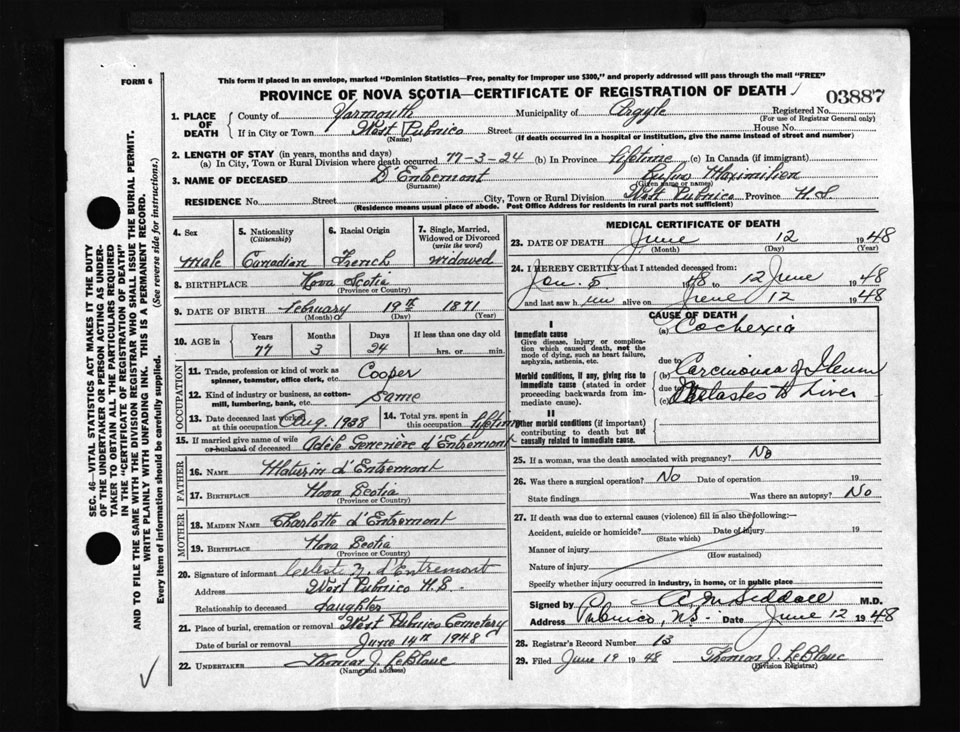 FORM 6
This form if placed in an envelope, marked "Dominion Statistics—Free, penalty for improper use $300," and properly addressed will pass through the mail "FREE"
PROVINCE OF NOVA SCOTIA—CERTIFICATE OF REGISTRATION OF DEATH
03887
1. PLACE OF DEATH
County of Yarmouth Municipality of Argyle Registered No.
(For use of Registrar General only)
If in City or Town West Pubnico Street House No.
(Name) (If death occurred in a hospital or institution, give the name instead of street and number)
2. LENGTH OF STAY (in years, months and days)
(a) In City, Town or Rural Division where death occurred 77-3-24 (b) In Province lifetime (c) In Canada (if immigrant)
3. NAME OF DECEASED D'Entremont Rufus Maximilien
(Surname) (Given name or names)
RESIDENCE No. Street City, Town or Rural Division West Pubnico Province N.S.
(Residence means usual place of abode. Post Office Address for residents in rural parts not sufficient)
4. Sex
male
5. Nationality
(Citizenship)
Canadian
6. Racial Origin
French
7. Single, Married, Widowed or Divorced
(write the word)
widowed
8. BIRTHPLACE Nova Scotia
(Province or Country)
9. DATE OF BIRTH February 19th 1871
(Month) (Day) (Year)
10. AGE in
Years Months Days If less than one day old
77 3 24 hrs. or min.
OCCUPATION
11. Trade, profession or kind of work as Cooper
spinner, teamster, office clerk, etc.
12. Kind of industry or business, as cotton-
mill, lumbering, bank, etc. same
13. Date deceased last worked
at this occupation Aug. 1938
14. Total yrs. spent in
this occupation lifetime
15. If married give name of wife
or husband of deceased Adèle Genevière d'Entremont
FATHER
16. NAME Maturin d'Entremont
17. BIRTHPLACE Nova Scotia
(Province or Country)
MOTHER
18. MAIDEN NAME Charlotte d'Entremont
19. BIRTHPLACE Nova Scotia
(Province or Country)
20. Signature of informant Celeste Z. d'Entremont
Address West Pubnico N.S.
Relationship to deceased daughter
21. Place of burial, cremation or removal West Pubnico Cemetery
Date of burial or removal June 14th 1948
22. UNDERTAKER Thomas J. LeBlanc
(Name and address)
MEDICAL CERTIFICATE OF DEATH
23. DATE OF DEATH June 12 1948
(Month) (Day) (Year)
24. I HEREBY CERTIFY that I attended deceased from:
Jan. 5 1948 to 12 June 1948
and last saw him alive on June 12 1948
CAUSE OF DEATH
I
Immediate cause
Give disease, injury or complication which caused death, not the mode of dying, such as heart failure, asphyxia, asthenia, etc.
(a) Cachexia
due to
Morbid conditions, if any, giving rise to immediate cause (stated in order proceeding backwards from immediate cause).
(b) Carcinoma of Ileum
due to
(c) Metastes to Liver
II
Other morbid conditions (if important) contributing to death but not causally related to immediate cause.
25. If a woman, was the death associated with pregnancy? No
26. Was there a surgical operation? No Date of operation 19
State findings Was there an autopsy? No
27. If death was due to external causes (violence) fill in also the following:—
Accident, suicide or homicide? Date of injury 19
(State which)
Manner of injury
(How sustained)
Nature of injury
Specify whether injury occurred in industry, in home, or in public place
Signed by A M Siddall M.D.
Address Pubnico, N.S. Date June 12 1948
28. Registrar's Record Number 13
29. Filed June 19 1948 Thomas J. LeBlanc
(Division Registrar)
SEC. 46—VITAL STATISTICS ACT MAKES IT THE DUTY
OF THE UNDERTAKER OR PERSON ACTING AS UNDERTAKER TO OBTAIN ALL THE PARTICULARS REQUIRED
IN THE "CERTIFICATE OF REGISTRATION OF DEATH"
AND TO FILE THE SAME WITH THE DIVISION REGISTRAR WHO SHALL ISSUE THE BURIAL PERMIT.
WRITE PLAINLY WITH UNFADING INK. THIS IS A PERMANENT RECORD.
Every item of information should be carefully supplied. (See reverse side for instructions.)